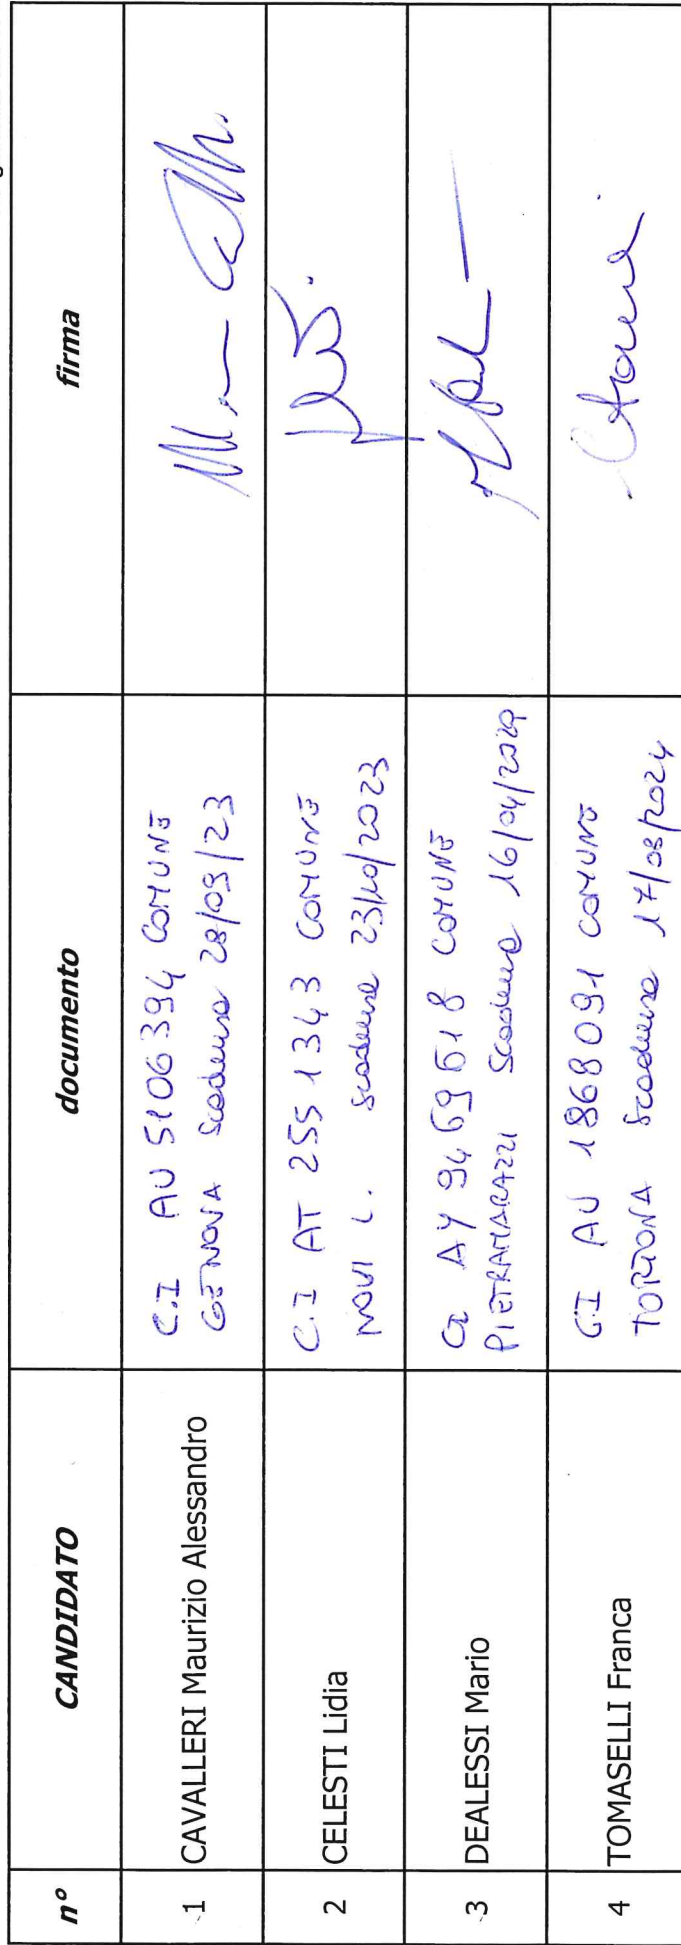 n° CANDIDATO documento firma
1 CAVALLERI Maurizio Alessandro
C.I AU 5106394 COMUNE
GENOVA scadenza 28/09/23
2 CELESTI Lidia
C.I AT 2551343 COMUNE
NOVI L. scadenza 23/10/2023
3 DEALESSI Mario
CI AY 9469618 COMUNE
PIETRAMARAZZI scadenza 16/04/2029
4 TOMASELLI Franca
CI AU 1868091 COMUNE
TORTONA scadenza 17/08/2024